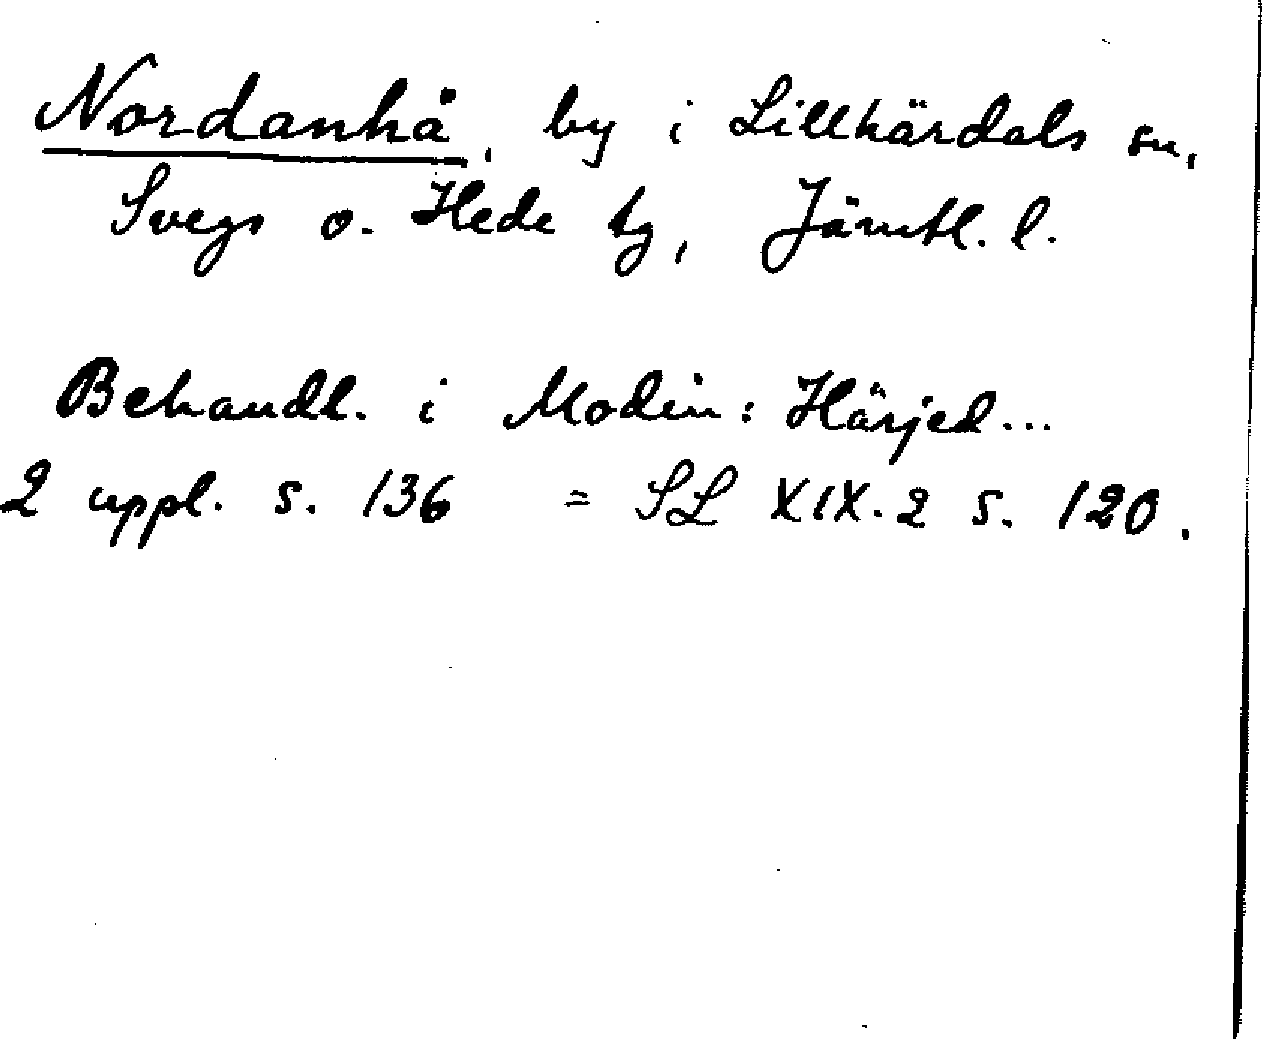 Nordanhå, by i Lillhärdals sn,
Svegs o. Hede tg, Jämtl. l.
Behandl. i Modin: Härjed...
2 uppl. s. 136 = SL XIX.2 s. 120.